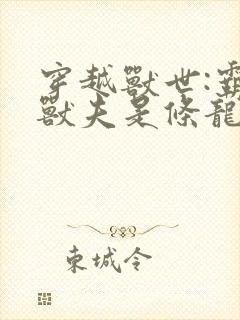 穿越獸世:霸
獸夫是條龍
東城令